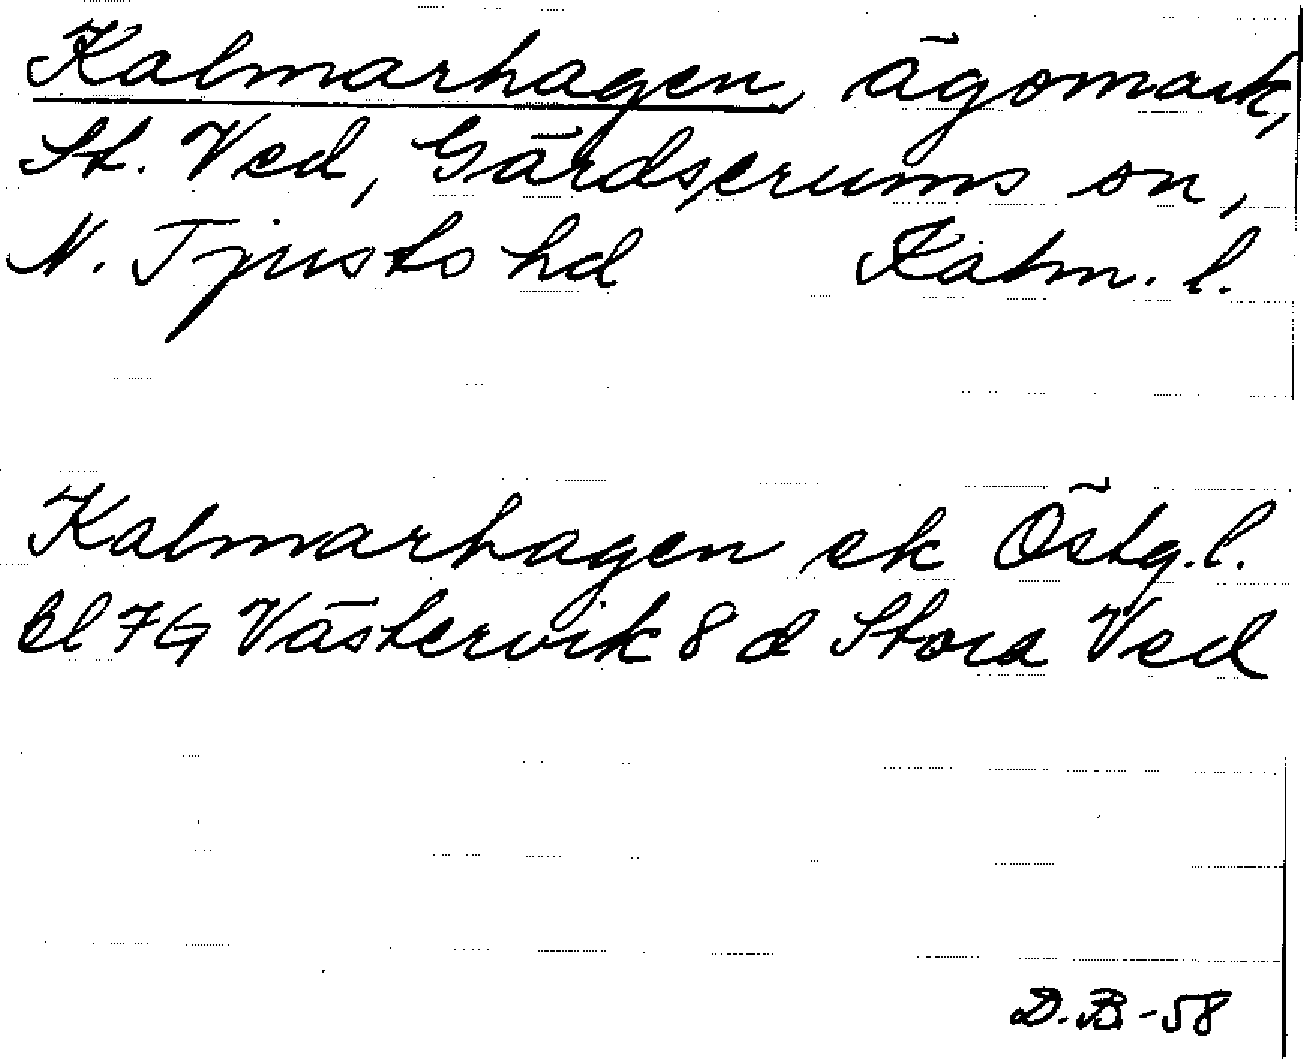 Kalmarhagen, ägomark,
St. Ved, Gärdserums sn,
N. Tjusts hd Kalm. l.
Kalmarhagen ek Östg. l.
bl 7G Västervik 8 d Stora Ved
D.B-58